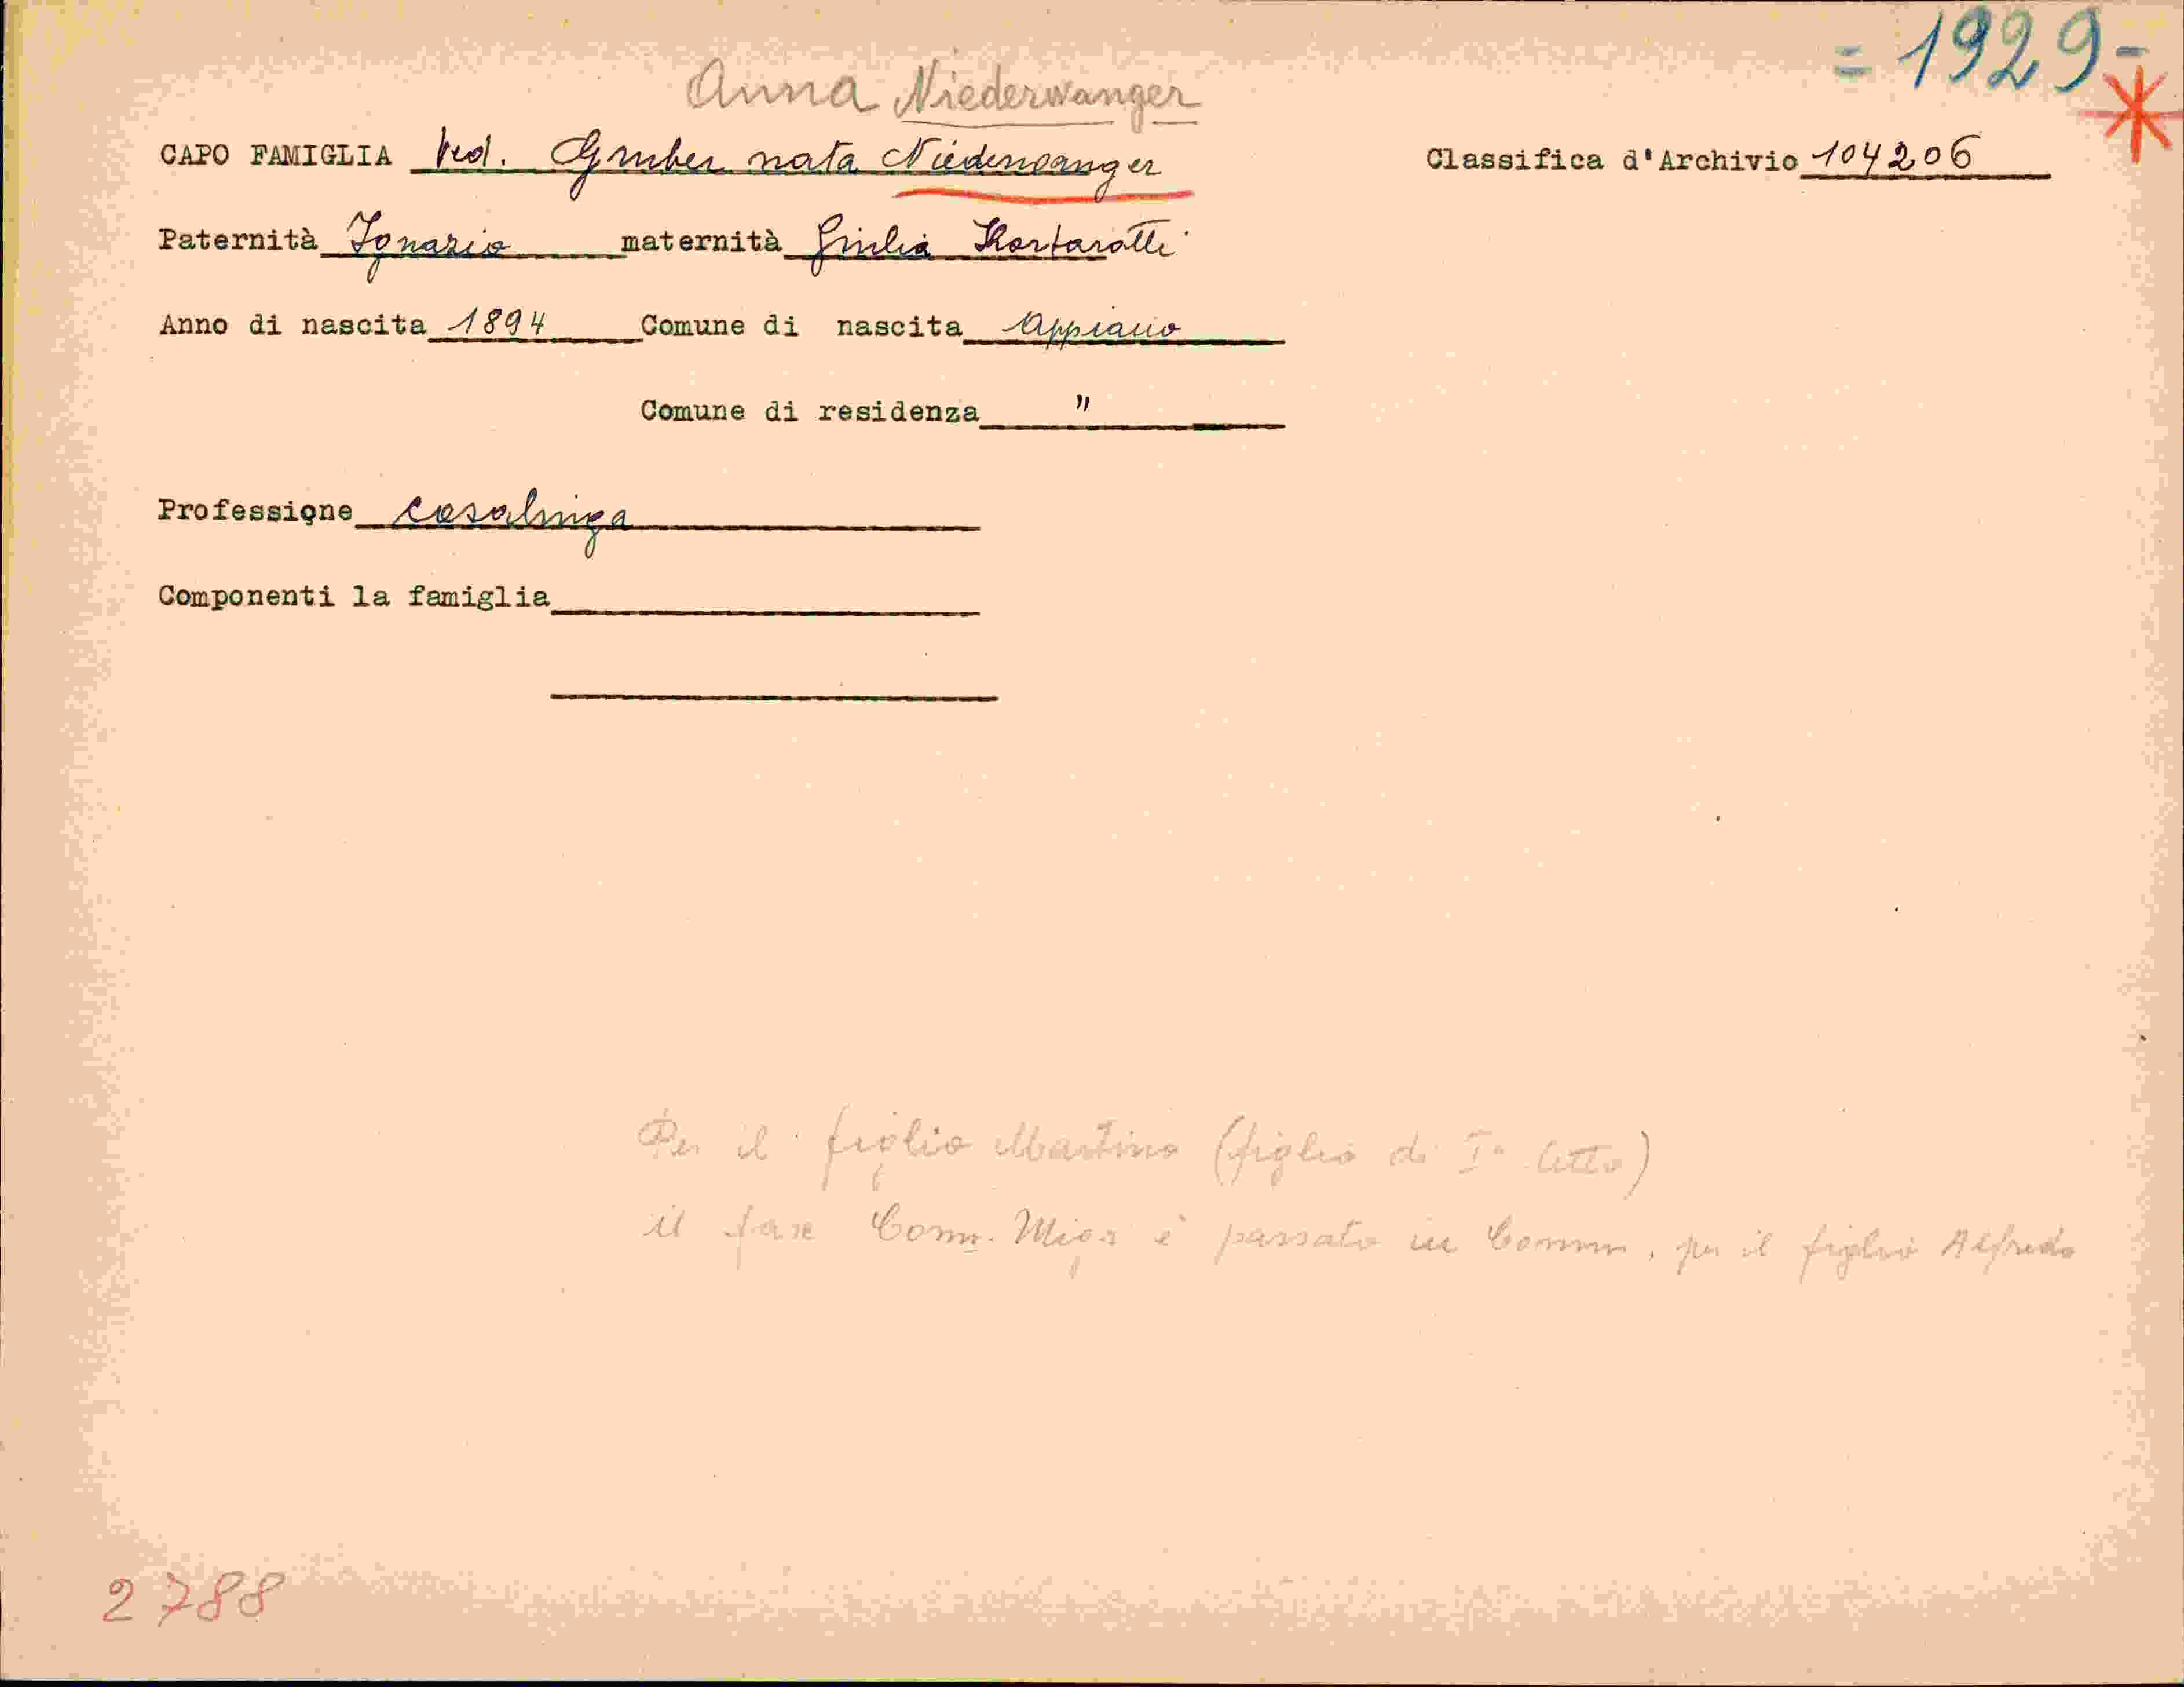 = 1929 -
Anna Niederwanger
CAPO FAMIGLIA Ved. Gruber nata Niederwanger Classifica d'Archivio 104206
Paternità Ignazio maternità Giulia
Anno di nascita 1894 Comune di nascita Appiano
Comune di residenza "
Professione casalinga
Componenti la famiglia
Per il figlio Martino (figlio di Iº letto)
il fasc Comm. Migr è passato in Comm. per il figlio Alfredo
2788